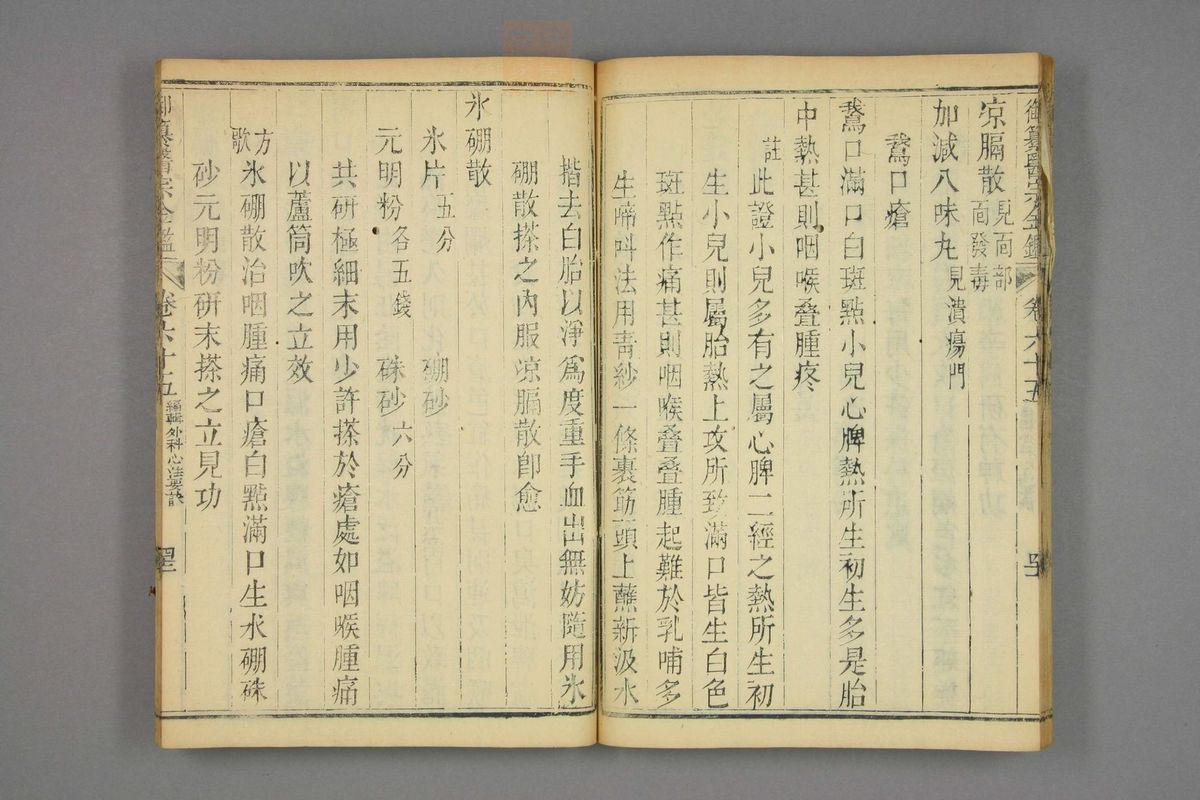 御纂醫宗金鑑 卷六十五
凉膈散見面部面發毒
加減八味丸見潰瘍門
鵞口瘡
鵞口滿口白斑點小兒心脾熱所生初生多是胎
中熱甚則咽喉叠腫疼
註此證小兒多有之屬心脾二經之熱所生初
生小兒則屬胎熱上攻所致滿口皆生白色
斑點作痛甚則咽喉叠叠腫起難於乳哺多
生啼呌法用靑紗一條裹筯頭上蘸新汲水
揩去白胎以淨爲度重手血出無妨隨用氷
硼散搽之內服凉膈散卽愈
氷硼散
氷片五分 硼砂
元明粉各五錢 硃砂六分
共研極細末用少許搽於瘡處如咽喉腫痛
以蘆筒吹之立效
方歌氷硼散治咽腫痛口瘡白點滿口生氷硼硃
砂元明粉研末搽之立見功
御纂醫宗金鑑 卷六十五 編輯外科心法要訣